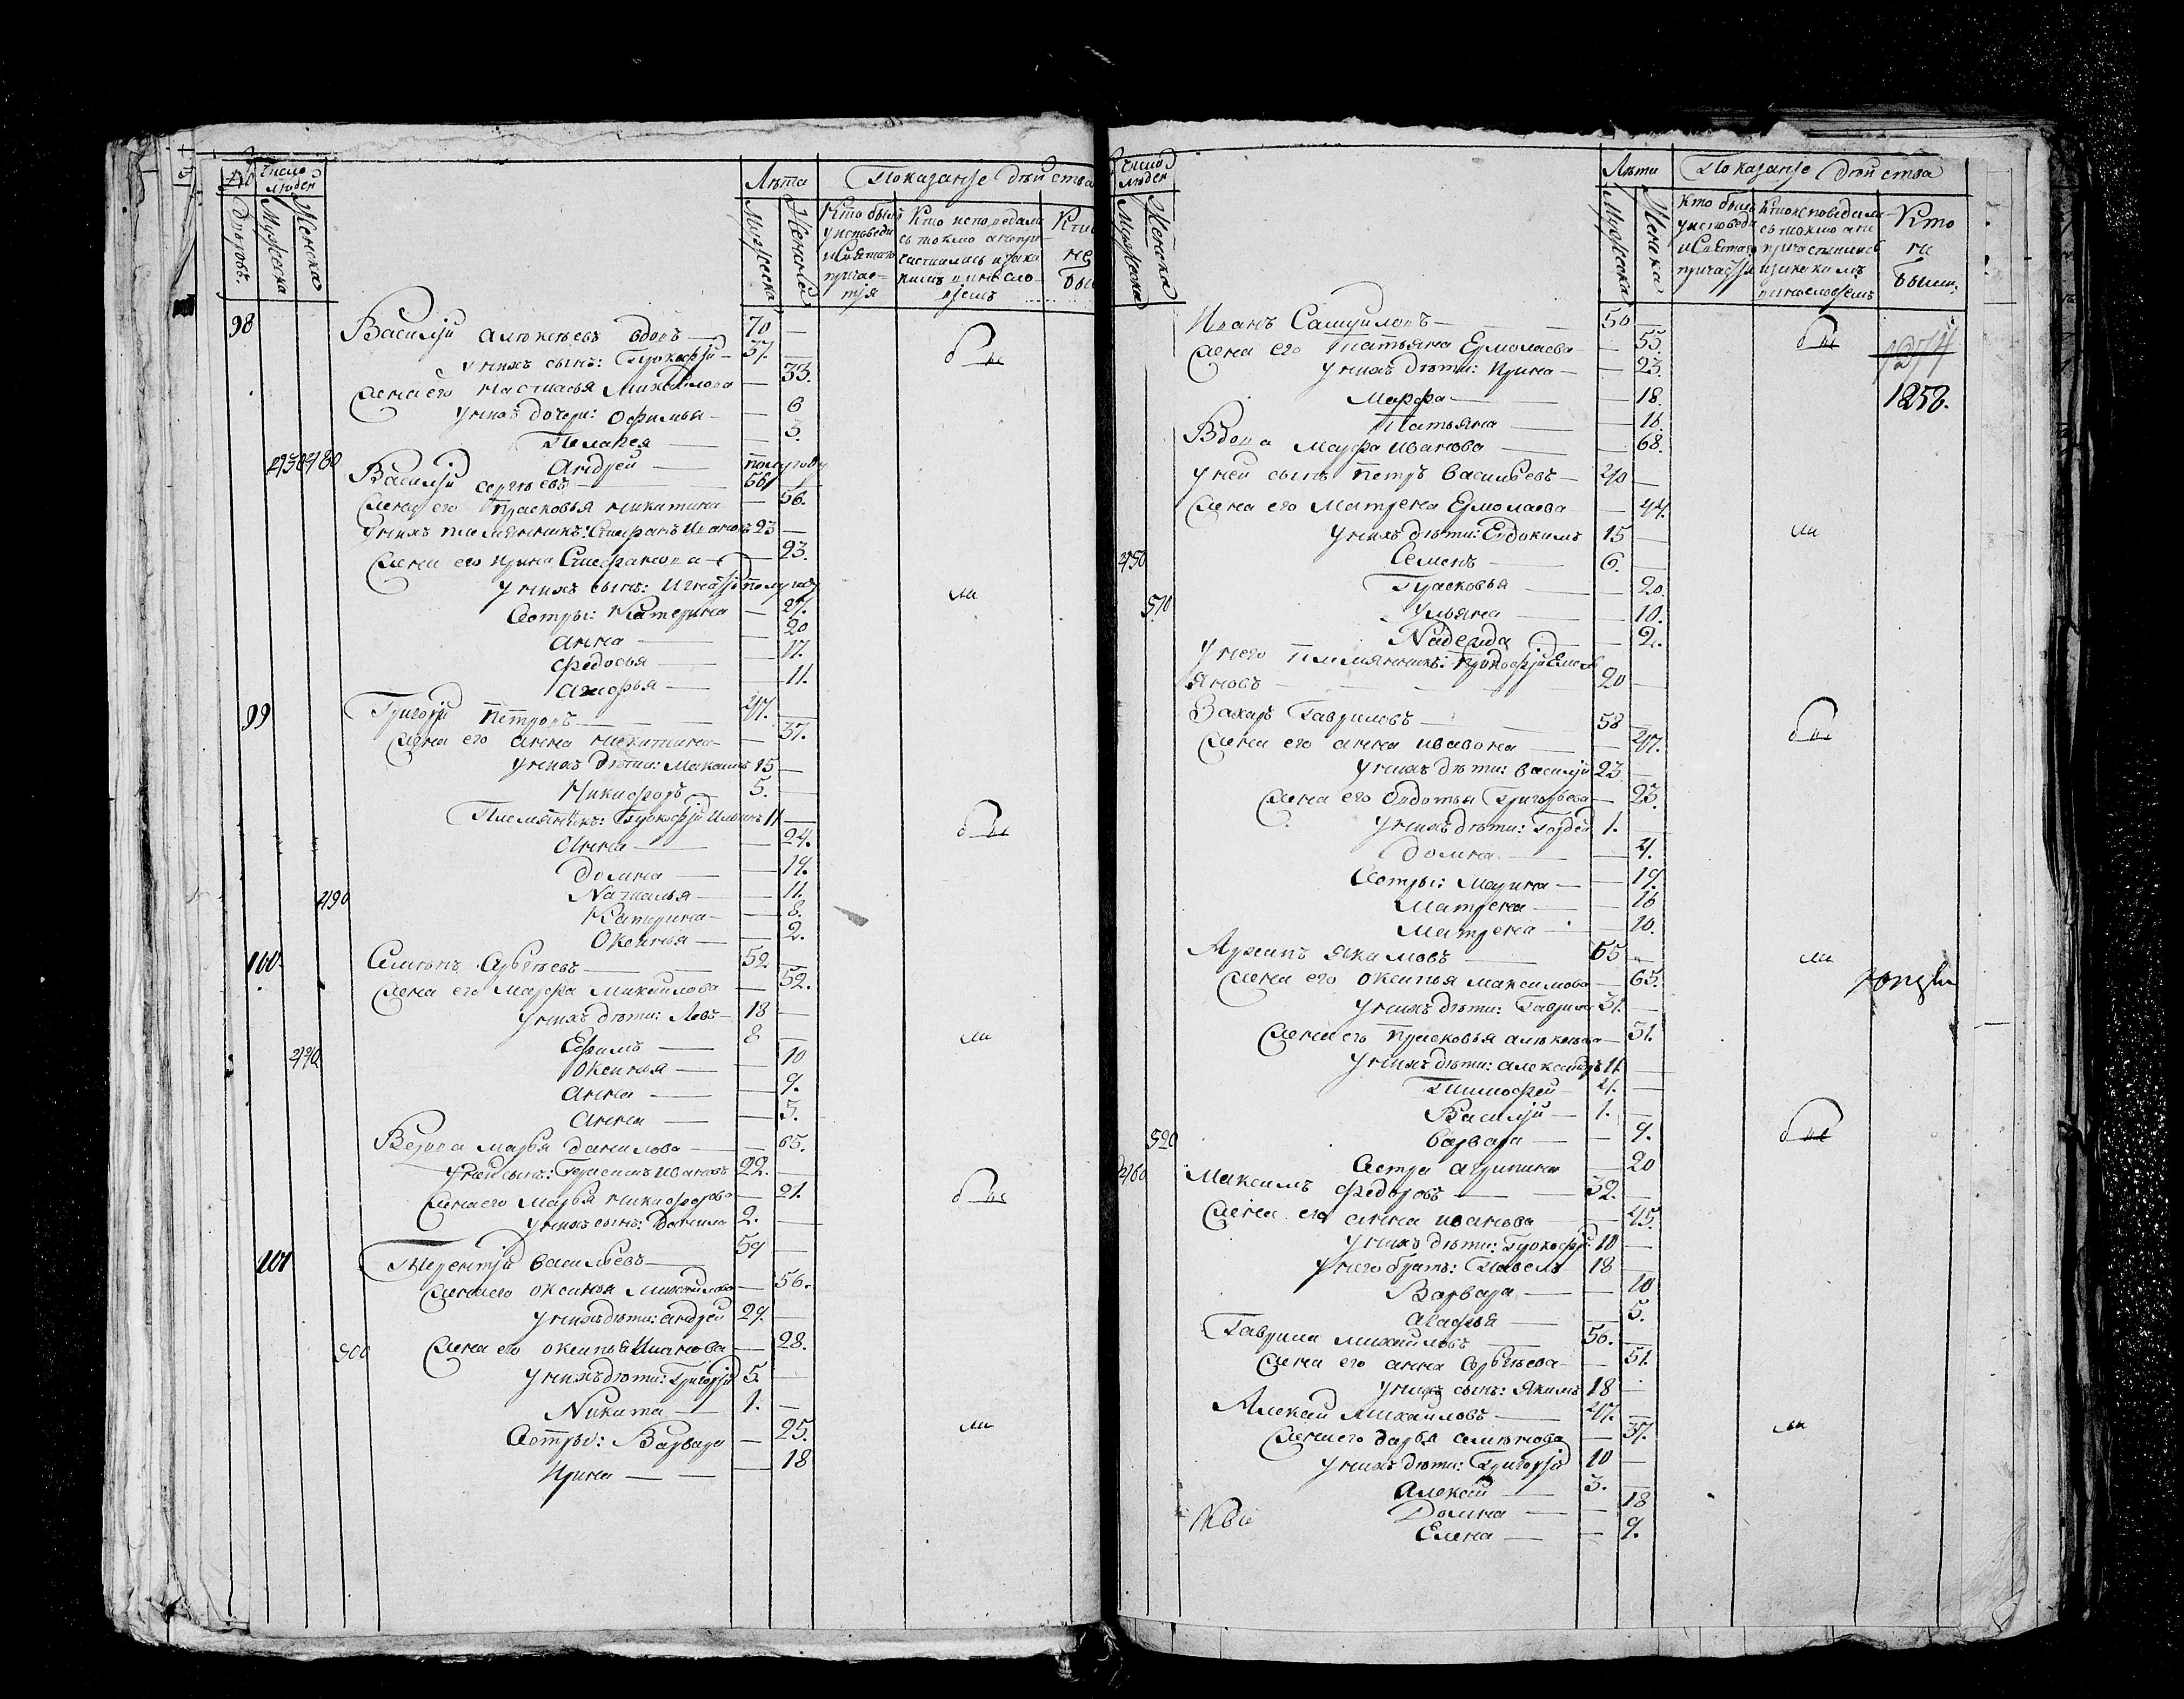 Число людей
Лѣта
Показанѵе дѣйства
Дворовъ
Мужеска
Женска
Мужеска
Женска
Кто былъ у исповеди и святаго причастія
Кто исповедались токмо а не причастились и за какимъ винословіемъ
Кто не былъ
98 Василій Алѣксѣевъ вдовъ 70
у нихъ сынъ: Прокофій 37.
жена его Настасья Михайлова 33.
у нихъ дочери: Офимья 6
Пелагея 3.
430 480 Андрей полугоду
Василій Сергѣевъ 56
жена его Прасковья Никитина 56.
у нихъ племянникъ: Стефанъ Ивановъ 23
жена его Ирина Стефанова 23.
у нихъ сынъ: Игнатій полугоду
Сестры: Катерина 27.
Анна 20
Федосья 17.
Агафья 11.
99 Григорій Петровъ 47.
жена его Анна Никитина 37.
у нихъ дѣти: Максимъ 15
Никифоръ 5.
Племянникъ: Прокофій Ильинъ 11
Анна 24.
Домна 19.
490 Наталья 11.
Катерина 8.
Оксинья 2.
100. Семенъ Сѣргѣевъ 52
жена его Марфа Михайлова 52.
у нихъ дѣти: Левъ 18
Ефимъ 8
440 Оксинья 10
Анна 9.
Анна 5.
Вдова Марья Данилова 65.
у ней сынъ: Герасимъ Ивановъ 22.
жена его Марья Никифорова 21.
у нихъ сынъ: Данила 2.
101 Терентій Васильевъ 59
жена его Оксинья Михайлова 56.
у нихъ дѣти: Андрей 29.
500 жена его Оксинья Иванова 28.
у нихъ дѣти: Григорій 5.
Никита 1.
Сестры: Варвара 25.
Ирина 18
Число людей
Лѣта
Показанѵе дѣйства
Мужеска
Женска
Мужеска
Женска
Кто былъ у исповеди и святаго причастія
Кто исповедались токмо а не причастились и за какимъ винословіемъ
Кто не были.
Иванъ Самуиловъ 50
жена его Татьяна Ермолаева 55.
у нихъ дѣти: Ирина 23.
Марфа 18.
1258.
Татьяна 16
Вдова Марфа Иванова 68.
у ней сынъ Петръ Васильевъ 40
жена его Матрена Ермолаева 44.
у нихъ дѣти: Евдокимъ 15
450 Семенъ 6.
Прасковья 20.
510 Ульяна 10.
Надежда 2.
у него племянникъ: Прокофій Емельяновъ 20
Захаръ Гавриловъ 58
жена его Анна Ивавона 47.
у нихъ дѣти: Василій 23
жена его Овдотья Григорьева 23.
у нихъ дѣти: Гордей 1.
Домна 4.
Сестры: Марина 19.
Матрена 16
Матрена 10.
Архипъ Якимовъ 65
жена его Оксинья Максимова 65.
у нихъ дѣти: Гаврила 31.
жена его Прасковья Алѣксѣева 31.
у нихъ дѣти: Александръ 11
Тимофей 4.
Василій 1.
520 Варвара 9.
Сестра Агрипина 20
460 Максимъ Федоровъ 52.
жена его Анна Иванова 45.
у нихъ дѣти: Прокофій 10
у него братъ: Павелъ 18
Варвара 10
Агафья 5.
Гаврила Михайловъ 50.
жена его Анна Сѣргѣева 51.
у нихъ сынъ: Якимъ 18
Алексѣй Михайловъ 47.
жена его Дарья Семѣнова 37.
у нихъ дѣти: Григорій 10
Алексѣй 3.
Домна 18
Елена 9.